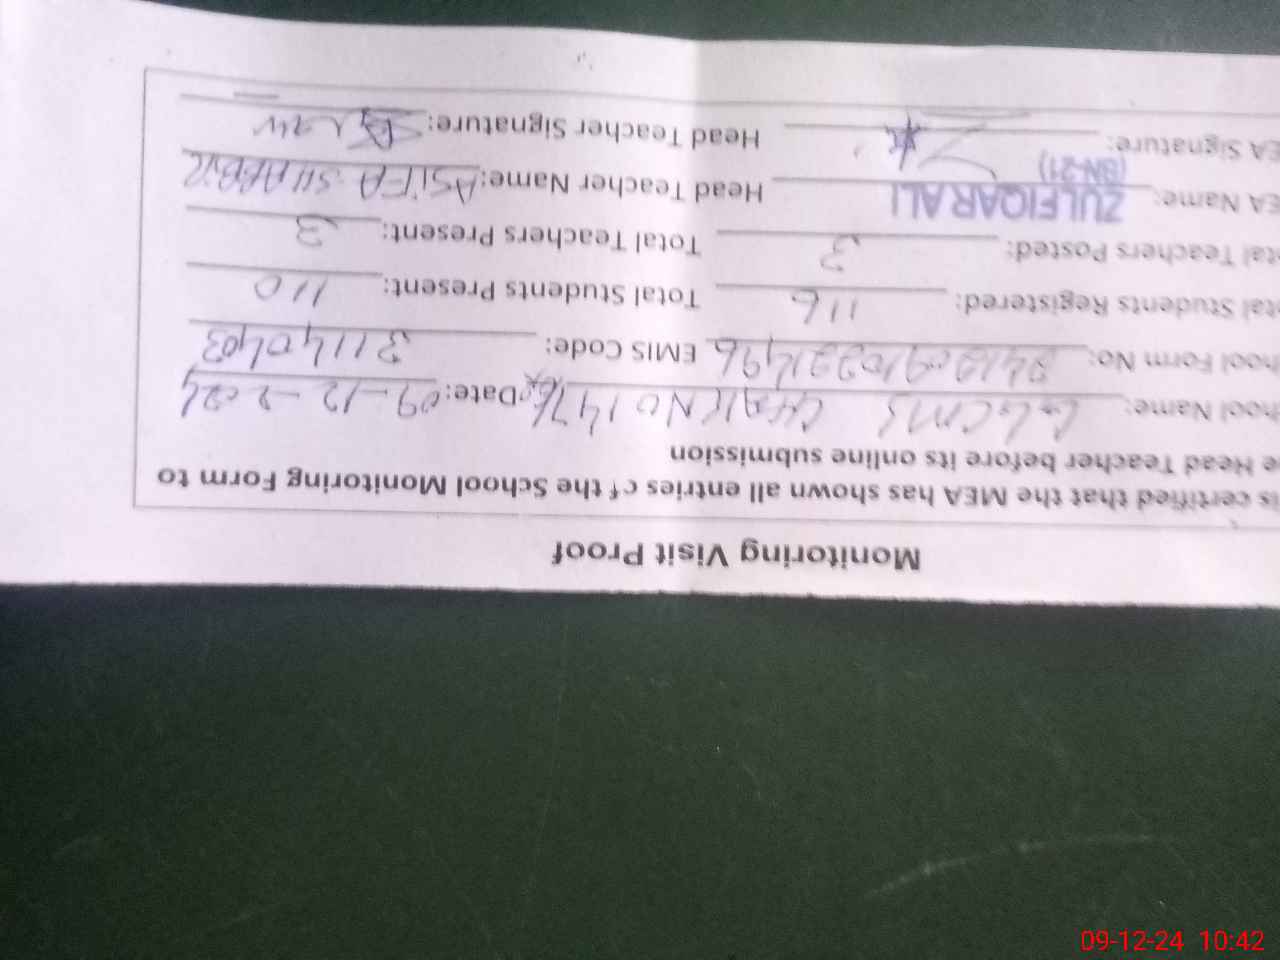 Monitoring Visit Proof
is certified that the MEA has shown all entries of the School Monitoring Form to
e Head Teacher before its online submission
hool Name: GGCMS CHAK NO 147 Date: 09-12-2024
hool Form No: EMIS Code: 31140403
tal Students Registered: 116 Total Students Present: 110
tal Teachers Posted: 3 Total Teachers Present: 3
EA Name: ZULFIQAR ALI (BN-21) Head Teacher Name: ASIFA SHABBIR
EA Signature: Head Teacher Signature:
09-12-24 10:42